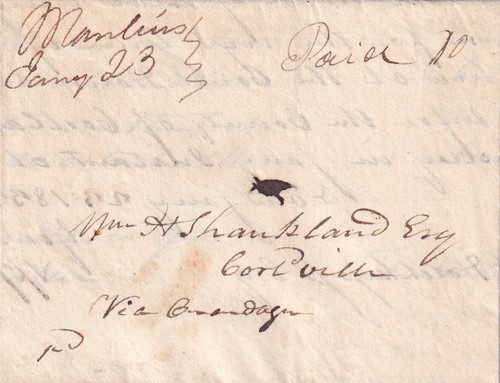 Manlius
Jany 23
Paid 10
Wm H Shankland Esq
Cortville
Via Onondaga
pd